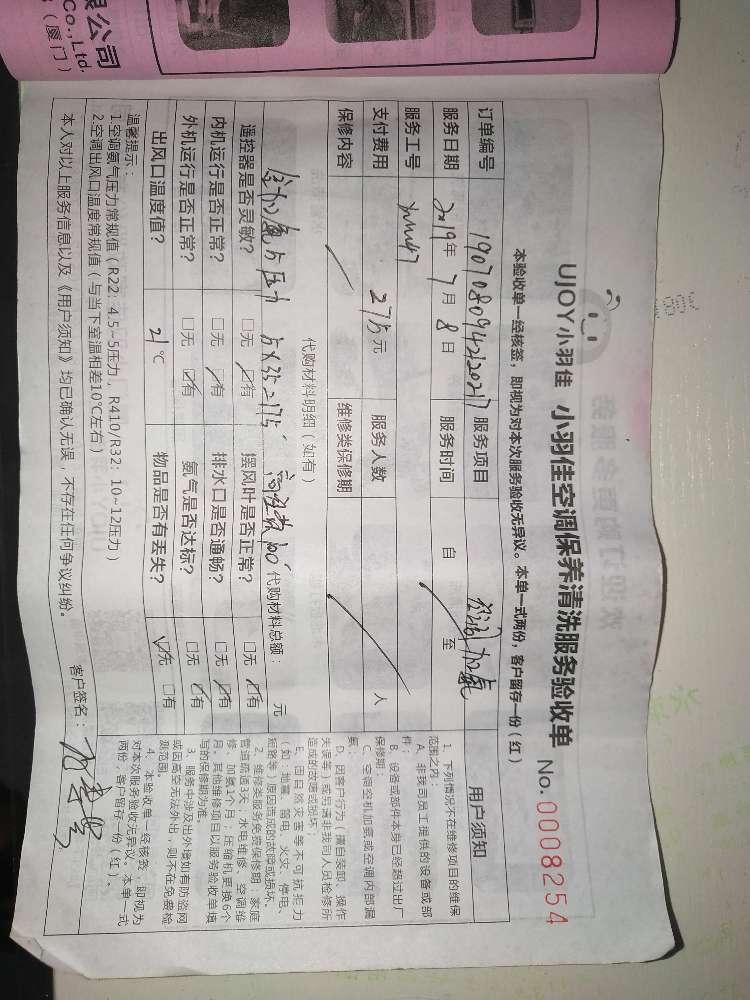 限公司
Co., Ltd.
(厦门)
UJOY小羽佳 小羽佳空调保养清洗服务验收单 No. 0008254
本验收单一经核签，即视为对本次服务验收无异议。本单一式两份，客户留存一份（红）
订单编号 服务项目
服务日期 2019年7月8日 服务时间 自 至
服务工号
支付费用 275元 服务人数 人
保修内容 维修类保修期
代购材料明细（如有）
5×35=175 高空费100 代购材料总额： 元
遥控器是否灵敏？ □无 ☑有 摆风叶是否正常？ □无 ☑有
内机运行是否正常？ □无 ☑有 排水口是否通畅？ □无 ☑有
外机运行是否正常？ □无 ☑有 氨气是否达标？ □无 ☑有
出风口温度值？ 21℃ 物品是否有丢失？ ☑无 □有
温馨提示：
1.空调氨气压力常规值（R22：4.5~5压力，R410/R32：10~12压力）
2.空调出风口温度常规值（与当下室温相差10℃左右）
本人对以上服务信息以及《用户须知》均已确认无误，不存在任何争议纠纷。
客户签名：
用户须知
1. 下列情况不在维修项目的维保
范围之内：
A. 非我司员工提供的设备或部
件；
B. 设备或部件本身已经超过出厂
保修期；
C. 空调空机加氨或空调内部漏
氨；
D. 因客户行为（擅自装卸、操作
失误等）或另请非我司人员检修所
造成的故障或损坏；
E. 因自然灾害等不可抗拒力
（如：地震、雷电、火灾、停电、
短路等）原因造成的故障或损坏。
2. 维修类服务免费保修期：家庭
管道疏通3天，水电维修、空调维
修、加氨1个月；压缩机更换6个
月。其他维修项目以服务验收单填
写的保修期为准。
3. 服务中涉及出外墙如有防盗网
或因高空无法外出，则不在免费检
测范围。
4. 本验收单一经核签，即视为
对本次服务验收无异议，本单一式
两份，客户留存一份（红）。